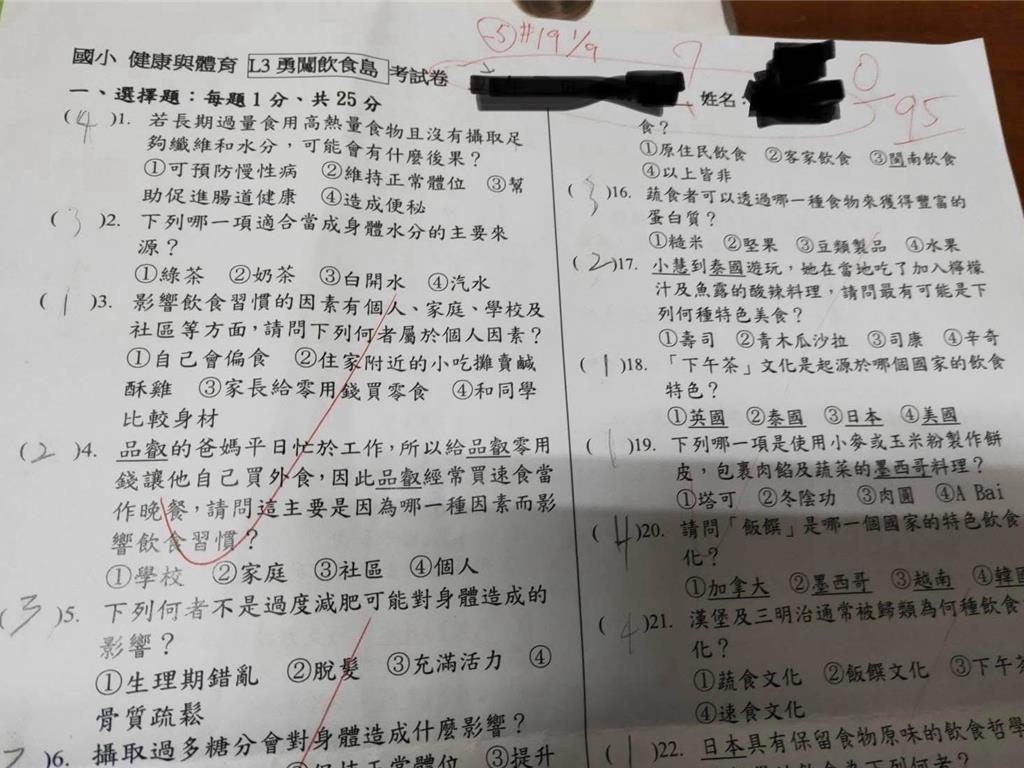 -5 #19 1/9
國小 健康與體育 L3勇闖飲食島 考試卷
姓名:
0
95
一、選擇題：每題1分、共25分
(4)1. 若長期過量食用高熱量食物且沒有攝取足
夠纖維和水分，可能會有什麼後果？
①可預防慢性病 ②維持正常體位 ③幫
助促進腸道健康 ④造成便秘
(3)2. 下列哪一項適合當成身體水分的主要來
源？
①綠茶 ②奶茶 ③白開水 ④汽水
(1)3. 影響飲食習慣的因素有個人、家庭、學校及
社區等方面，請問下列何者屬於個人因素？
①自己會偏食 ②住家附近的小吃攤賣鹹
酥雞 ③家長給零用錢買零食 ④和同學
比較身材
(2)4. 品叡的爸媽平日忙於工作，所以給品叡零用
錢讓他自己買外食，因此品叡經常買速食當
作晚餐，請問這主要是因為哪一種因素而影
響飲食習慣？
①學校 ②家庭 ③社區 ④個人
(3)5. 下列何者不是過度減肥可能對身體造成的
影響？
①生理期錯亂 ②脫髮 ③充滿活力 ④
骨質疏鬆
)6. 攝取過多糖分會對身體造成什麼影響？
②保持正常體位 ③提升
食？
①原住民飲食 ②客家飲食 ③閩南飲食
④以上皆非
(3)16. 蔬食者可以透過哪一種食物來獲得豐富的
蛋白質？
①糙米 ②堅果 ③豆類製品 ④水果
(2)17. 小慧到泰國遊玩，她在當地吃了加入檸檬
汁及魚露的酸辣料理，請問最有可能是下
列何種特色美食？
①壽司 ②青木瓜沙拉 ③司康 ④辛奇
(1)18. 「下午茶」文化是起源於哪個國家的飲食
特色？
①英國 ②泰國 ③日本 ④美國
(1)19. 下列哪一項是使用小麥或玉米粉製作餅
皮，包裹肉餡及蔬菜的墨西哥料理？
①塔可 ②冬陰功 ③肉圓 ④A Bai
(4)20. 請問「飯饌」是哪一個國家的特色飲食
化？
①加拿大 ②墨西哥 ③越南 ④韓國
(4)21. 漢堡及三明治通常被歸類為何種飲食
化？
①蔬食文化 ②飯饌文化 ③下午茶
④速食文化
(1)22. 日本具有保留食物原味的飲食哲學